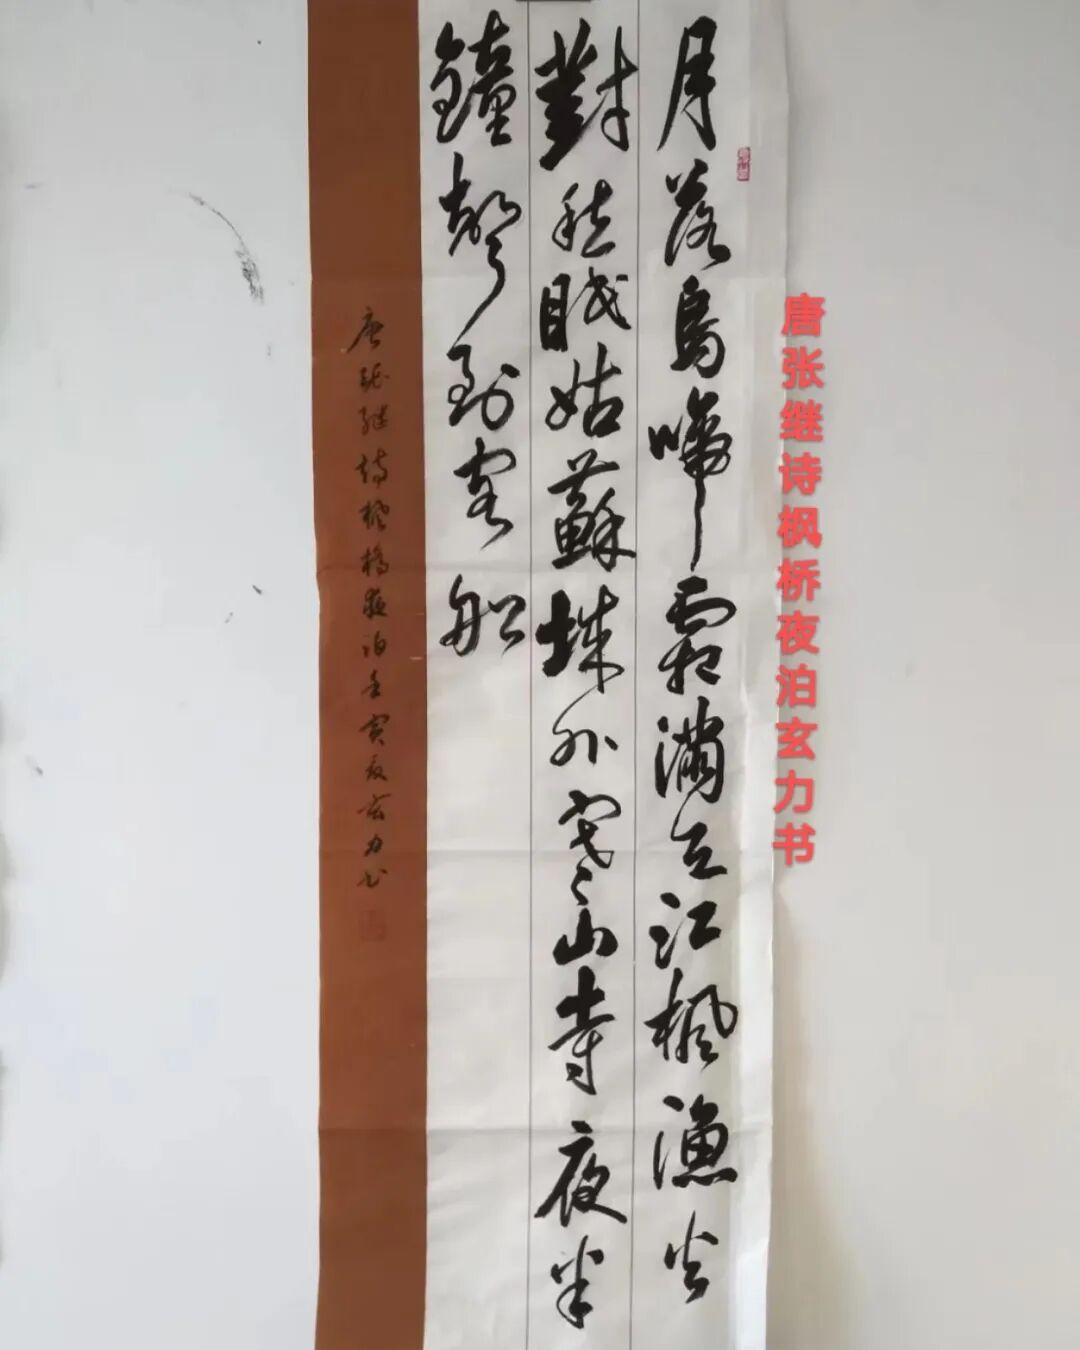 月落烏啼霜滿天江楓漁火
對愁眠姑蘇城外寒山寺夜半
鐘聲到客船
唐張繼詩楓橋夜泊壬寅夏玄力书
唐张继诗枫桥夜泊玄力书